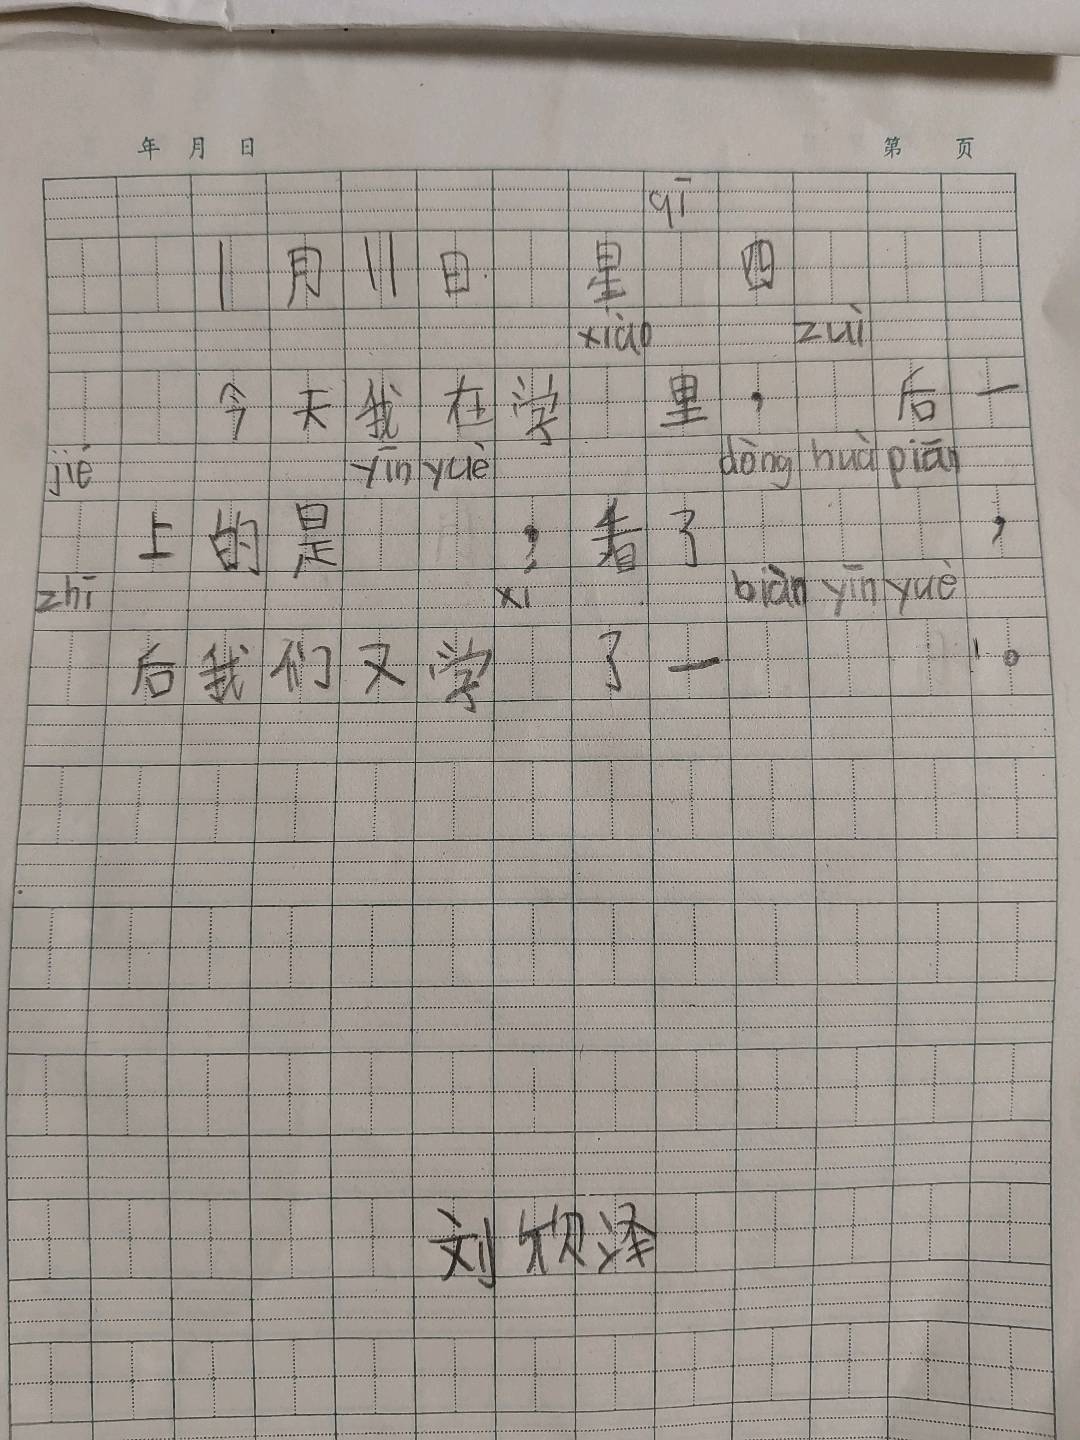 年 月 日 第 页
qī
1月11日 星 四
xiào zuì
今天我在学 里， 后一
jié yīn yuè dòng huà piān
上的是 ，看了 ，
zhī xí biàn yīn yuè
后我们又学 了一 。
刘欣泽